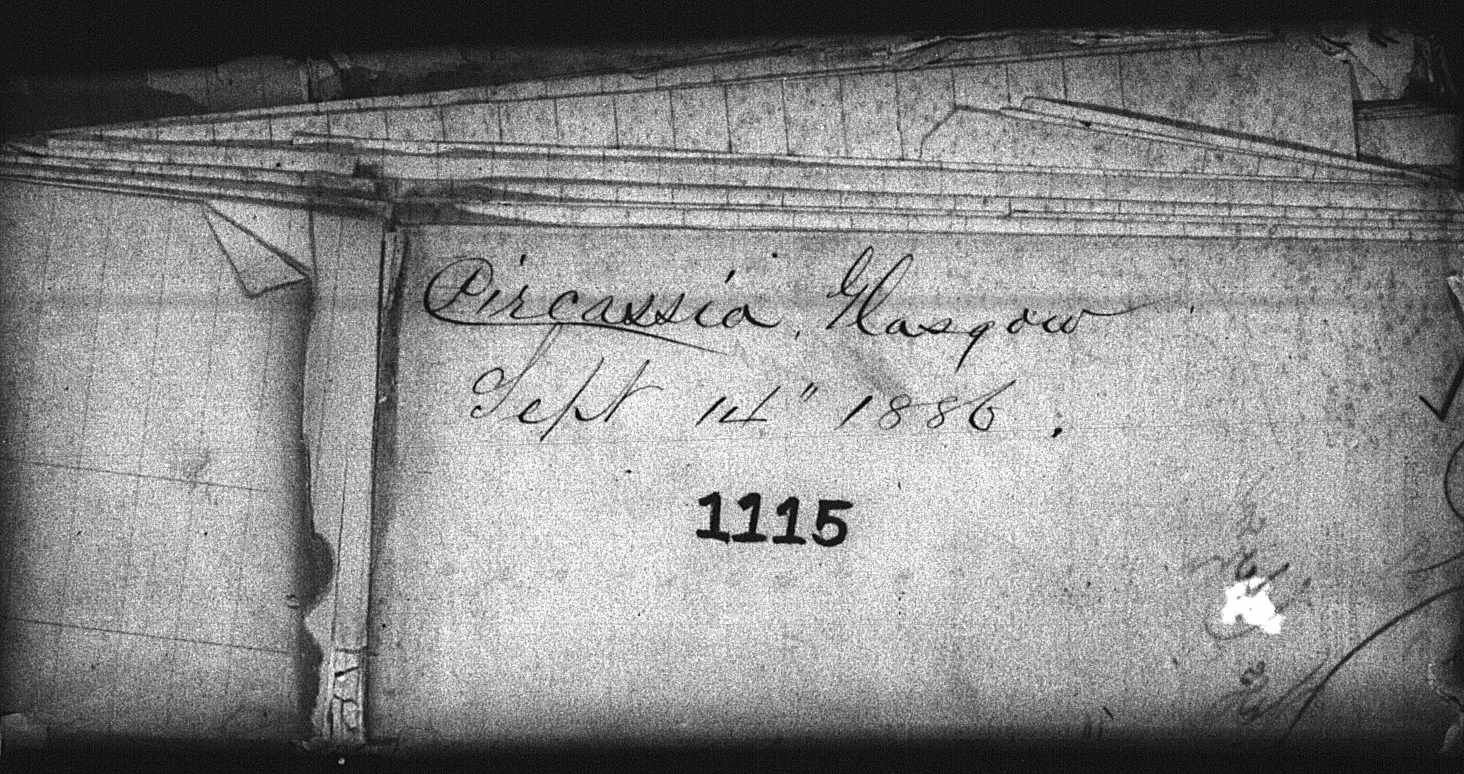 Circassia, Glasgow
Sept 14" 1886.
1115